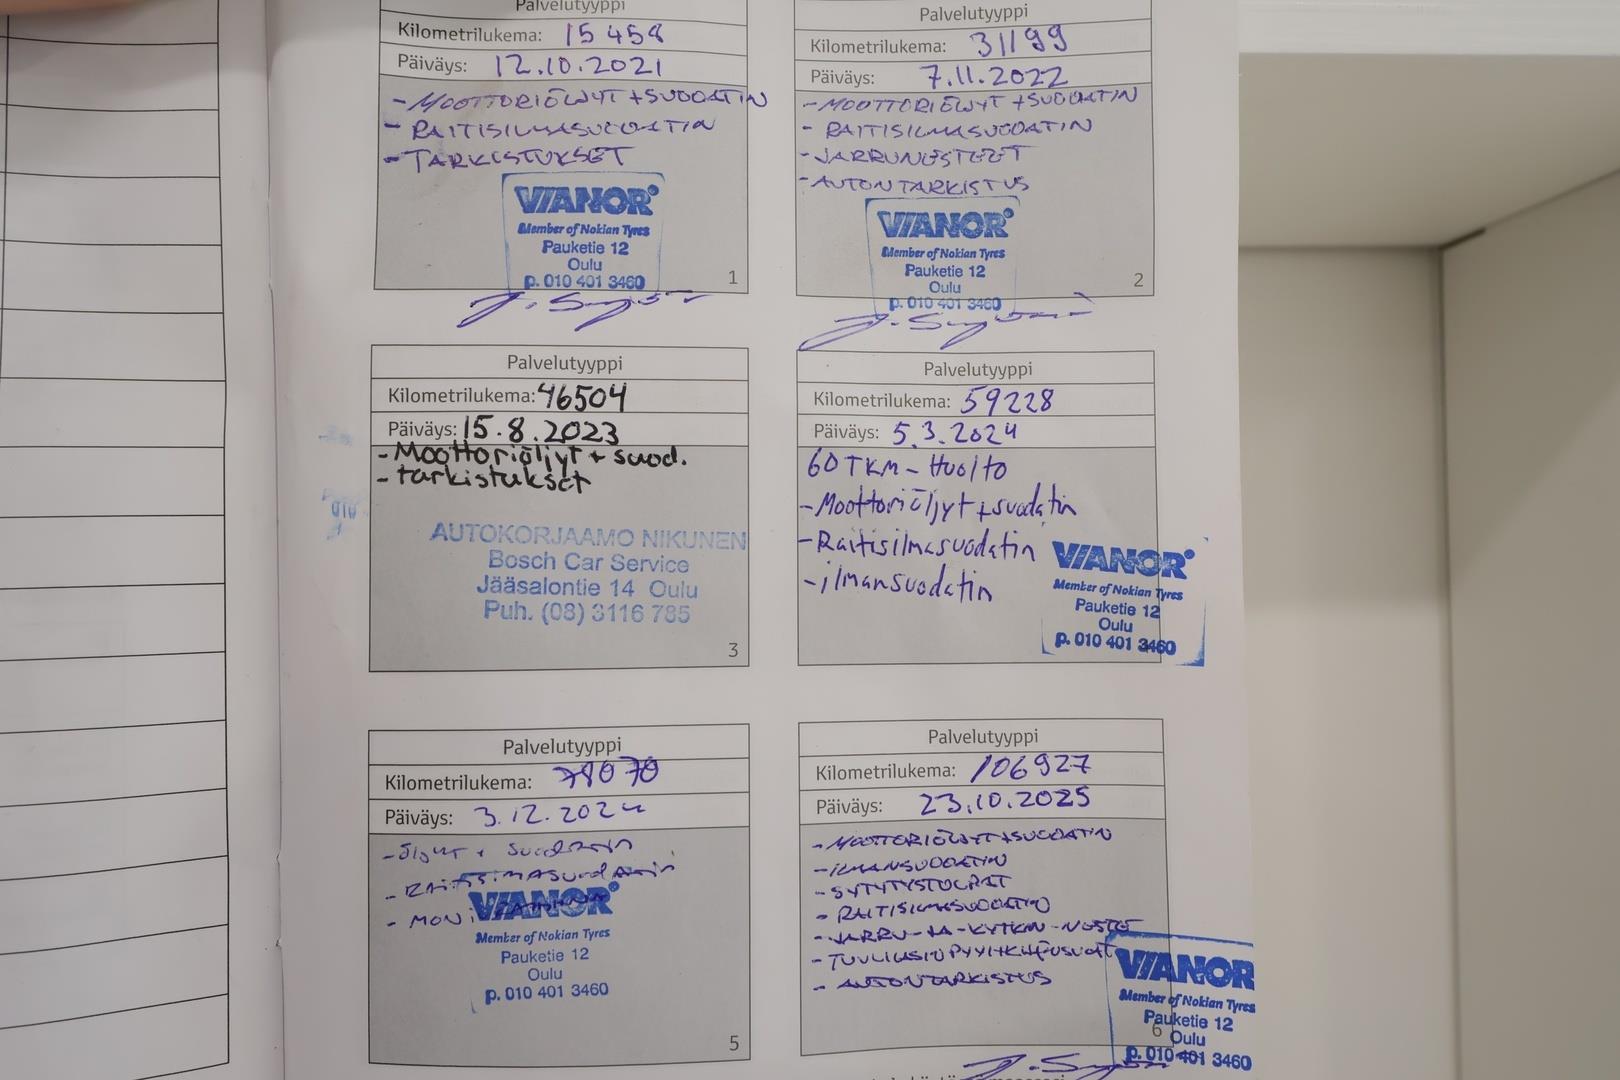 Palvelutyyppi
Kilometrilukema: 15 458
Päiväys: 12.10.2021
- MOOTTORIÖLJYT + SUODATIN
- RAITISILMASUODATIN
- TARKISTUKSET
VIANOR
Member of Nokian Tyres
Pauketie 12
Oulu
p. 010 401 3460
1
Palvelutyyppi
Kilometrilukema: 31199
Päiväys: 7.11.2022
- MOOTTORIÖLJYT + SUODATIN
- RAITISILMASUODATIN
- JARRUNESTEET
- AUTON TARKISTUS
VIANOR
Member of Nokian Tyres
Pauketie 12
Oulu
p. 010 401 3460
2
Palvelutyyppi
Kilometrilukema: 46504
Päiväys: 15.8.2023
- Moottoriöljyt + suod.
- tarkistukset
AUTOKORJAAMO NIKUNEN
Bosch Car Service
Jääsalontie 14 Oulu
Puh. (08) 3116 785
3
Palvelutyyppi
Kilometrilukema: 59228
Päiväys: 5.3.2024
60 TKM - Huolto
- Moottoriöljyt + suodatin
- Raitisilmasuodatin
- ilmansuodatin
VIANOR
Member of Nokian Tyres
Pauketie 12
Oulu
p. 010 401 3460
Palvelutyyppi
Kilometrilukema:
Päiväys: 3.12.2024
- Öljyt + suodatin
- RAITISIMASuodATin
- MONI
VIANOR
Member of Nokian Tyres
Pauketie 12
Oulu
p. 010 401 3460
5
Palvelutyyppi
Kilometrilukema: 106927
Päiväys: 23.10.2025
- MOOTTORIÖLJYT + SUODATIN
- ILMANSUODATIN
- SYTYTYSTULPAT
- RAITISILMASUODATIN
- JARRU- JA -KYTKIN -NESTE
- TUULILASIN PYYHKIJÄ
- AUTON TARKISTUS
VIANOR
Member of Nokian Tyres
Pauketie 12
6
Oulu
p. 010 401 3460